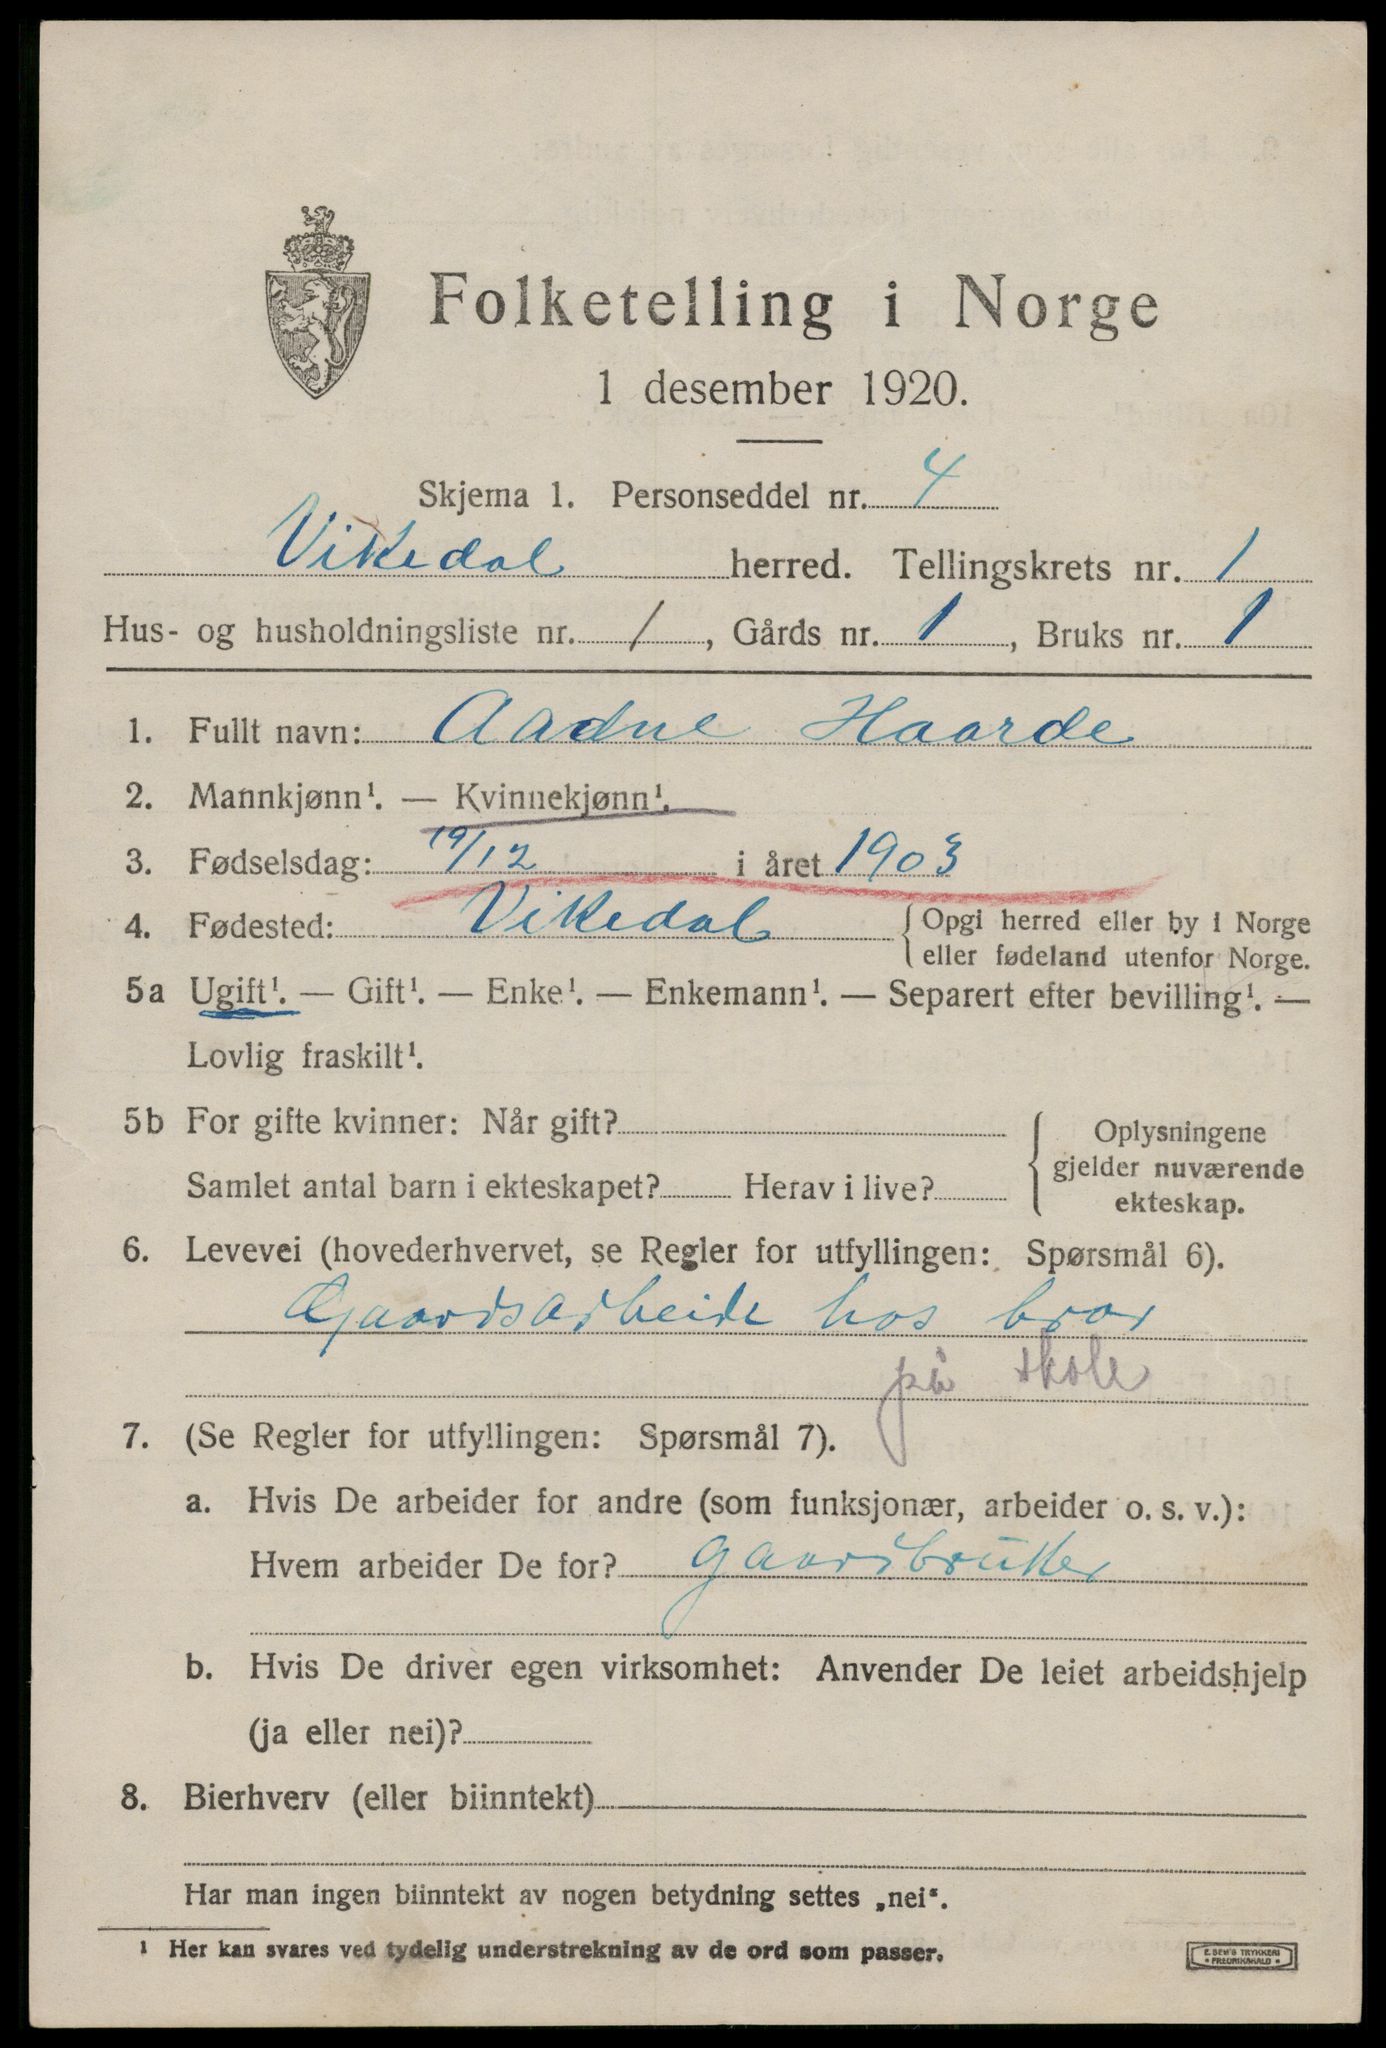 Folketelling i Norge
1 desember 1920.
Skjema 1. Personseddel nr. 4
Vikedal herred. Tellingskrets nr. 1
Hus- og husholdningsliste nr. 1, Gårds nr. 1, Bruks nr. 1
1. Fullt navn: Aadne Haarde
2. Mannkjønn¹. — Kvinnekjønn¹.
3. Fødselsdag: 19/12 i året 1903
4. Fødested: Vikedal { Opgi herred eller by i Norge
eller fødeland utenfor Norge.
5a Ugift¹. — Gift¹. — Enke¹. — Enkemann¹. — Separert efter bevilling¹. —
Lovlig fraskilt¹.
5b For gifte kvinner: Når gift?
Samlet antal barn i ekteskapet? Herav i live?
Oplysningene
gjelder nuværende
ekteskap.
6. Levevei (hovederhvervet, se Regler for utfyllingen: Spørsmål 6).
Gaardsarbeide hos bror
på skole
7. (Se Regler for utfyllingen: Spørsmål 7).
a. Hvis De arbeider for andre (som funksjonær, arbeider o. s. v.):
Hvem arbeider De for? gaardbruker
b. Hvis De driver egen virksomhet: Anvender De leiet arbeidshjelp
(ja eller nei)?
8. Bierhverv (eller biinntekt)
Har man ingen biinntekt av nogen betydning settes „nei“.
¹ Her kan svares ved tydelig understrekning av de ord som passer.
E. SEM'S TRYKKERI
• FREDRIKSHALD •